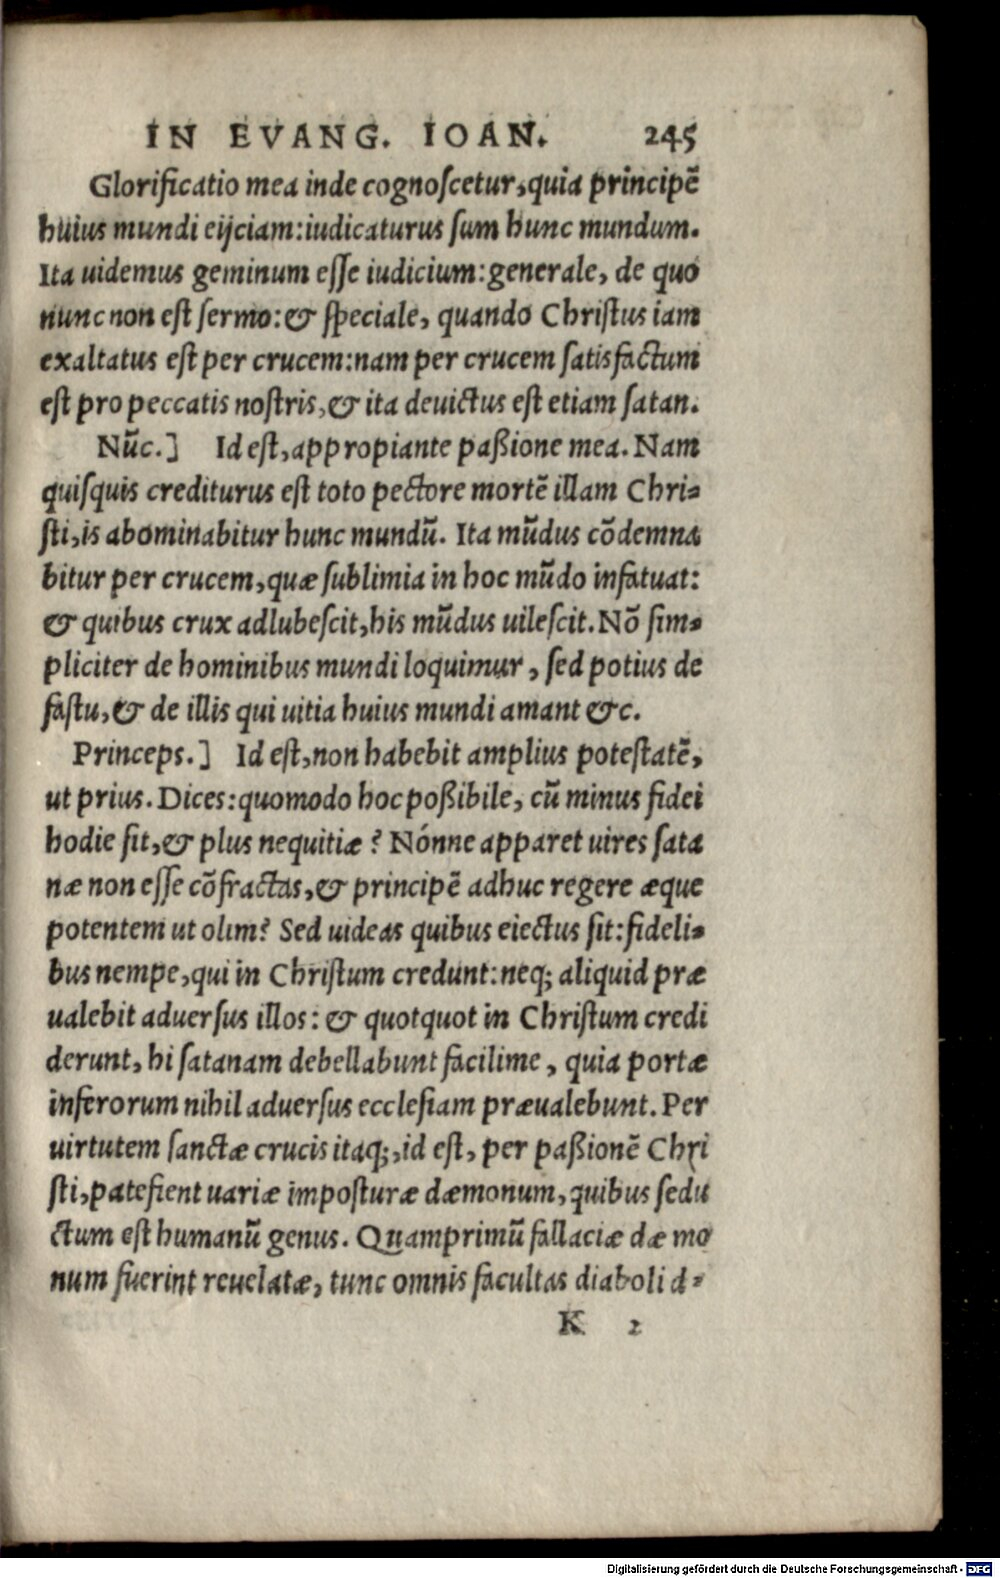 IN EVANG. IOAN. 245
Glorificatio mea inde cognoſcetur, quia principē
huius mundi eijciam: iudicaturus ſum hunc mundum.
Ita uidemus geminum eſſe iudicium: generale, de quo
nunc non eſt ſermo: & ſpeciale, quando Chriſtus iam
exaltatus eſt per crucem: nam per crucem ſatisfactum
eſt pro peccatis noſtris, & ita deuictus eſt etiam ſatan.
Nūc.] Id eſt, appropiante paßione mea. Nam
quiſquis crediturus eſt toto pectore mortē illam Chri⸗
ſti, is abominabitur hunc mundū. Ita mūdus cōdemna
bitur per crucem, quæ ſublimia in hoc mūdo infatuat:
& quibus crux adlubeſcit, his mūdus uileſcit. Nō ſim⸗
pliciter de hominibus mundi loquimur, ſed potius de
faſtu, & de illis qui uitia huius mundi amant &c.
Princeps.] Id eſt, non habebit amplius poteſtatē,
ut prius. Dices: quomodo hoc poßibile, cū minus fidei
hodie ſit, & plus nequitiæ? Nónne apparet uires ſata
næ non eſſe cōfractas, & principē adhuc regere æque
potentem ut olim? Sed uideas quibus eiectus ſit: fideli⸗
bus nempe, qui in Chriſtum credunt: neq; aliquid præ
ualebit aduerſus illos: & quotquot in Chriſtum credi
derunt, hi ſatanam debellabunt facilime, quia portæ
inferorum nihil aduerſus eccleſiam præualebunt. Per
uirtutem ſanctæ crucis itaq;, id eſt, per paßionē Chri
ſti, patefient uariæ impoſturæ dæmonum, quibus ſedu
ctum eſt humanū genus. Quamprimū fallaciæ dæmo
num fuerint reuelatæ, tunc omnis facultas diaboli d⸗
K 2
Digitalisierung gefördert durch die Deutsche Forschungsgemeinschaft - DFG